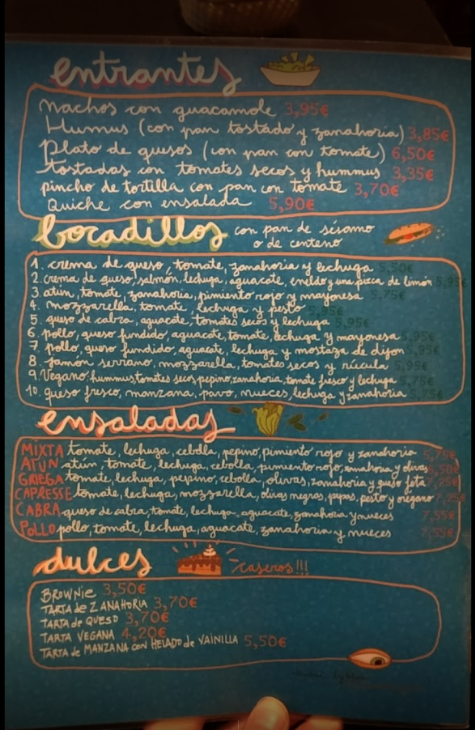 entrantes
Nachos con guacamole 3,95€
Humus (con pan tostado y zanahoria) 3,85€
Plato de quesos (con pan con tomate) 6,50€
tostadas con tomates secos y hummus 3,35€
pincho de tortilla con pan con tomate 3,70€
Quiche con ensalada 5,90€
bocadillos con pan de sésamo
o de centeno
1. crema de queso, tomate, zanahoria y lechuga 5,50€
2. crema de queso, salmón, lechuga, aguacate, eneldo y una pizca de limón
3. atún, tomate, zanahoria, pimiento rojo y mayonesa 5,75€
4. mozzarella, tomate, lechuga y pesto 5,95€
5. queso de cabra, aguacate, tomates secos y lechuga 5,95€
6. pollo, queso fundido, aguacate, tomate, lechuga y mayonesa 5,95€
7. pollo, queso fundido, aguacate, lechuga y mostaza de dijon 5,95€
8. jamón serrano, mozzarella, tomates secos y rúcula 5,95€
9. Vegano hummus, tomates secos, pepino, zanahoria, tomate fresco y lechuga 5,75€
10. queso fresco, manzana, pavo, nueces, lechuga y zanahoria
ensaladas
MIXTA tomate, lechuga, cebolla, pepino, pimiento rojo y zanahoria 5,75€
ATÚN atún, tomate, lechuga, cebolla, pimiento rojo, zanahoria y olivas 6,50€
GRIEGA tomate, lechuga, pepino, cebolla, olivas, zanahoria y queso feta 7,25€
CAPRESSE tomate, lechuga, mozzarella, olivas negras, pipas, pesto y orégano 7,25€
CABRA queso de cabra, tomate, lechuga, aguacate, zanahoria y nueces 7,55€
POLLO pollo, tomate, lechuga, aguacate, zanahoria y nueces 7,55€
dulces caseros!!!
BROWNIE 3,50€
TARTA de ZANAHORIA 3,70€
TARTA de QUESO 3,70€
TARTA VEGANA 4,20€
TARTA de MANZANA con HELADO de VAINILLA 5,50€